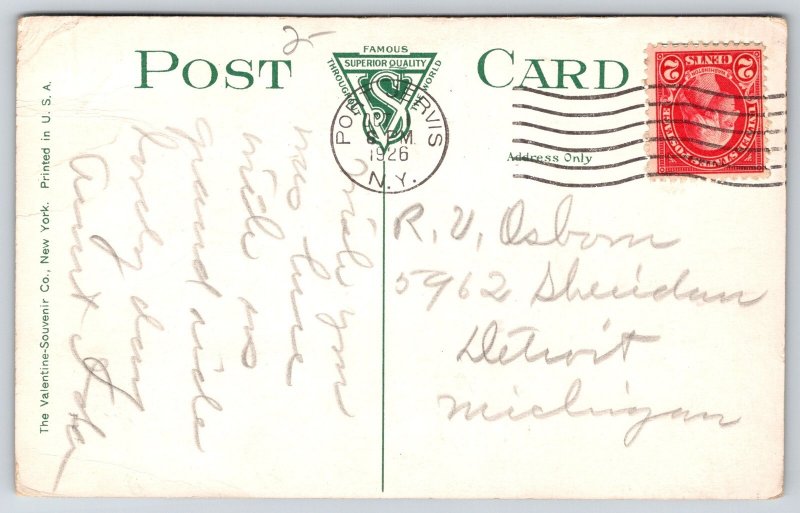 POST CARD
FAMOUS
SUPERIOR QUALITY
THROUGHOUT THE WORLD
PORT JERVIS
5 PM
1926
N.Y.
2 CENTS 2
Address Only
The Valentine-Souvenir Co., New York. Printed in U. S. A.
Wish you
was here
with us
grand ride
lovely day
Aunt Ida
R. V. Osborn
5962 Sheridan
Detroit
Michigan